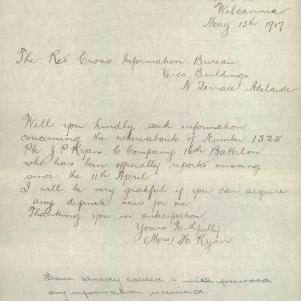 Wilcannia
May 13th 1917
The Red Cross Information Bureau
Verco Buildings
N Terrace Adelaide
Will you kindly seek information
concerning the whereabouts of Number 1325
Pte J P Ryan C Company 16th Battalion
who has been officially reports missing
since the 11th April
I will be very grateful if you can acquire
any definite news for me
Thanking you in anticipation
Yours Faithfully
(Mrs) H. Ryan
Have already cabled & will forward
any information received